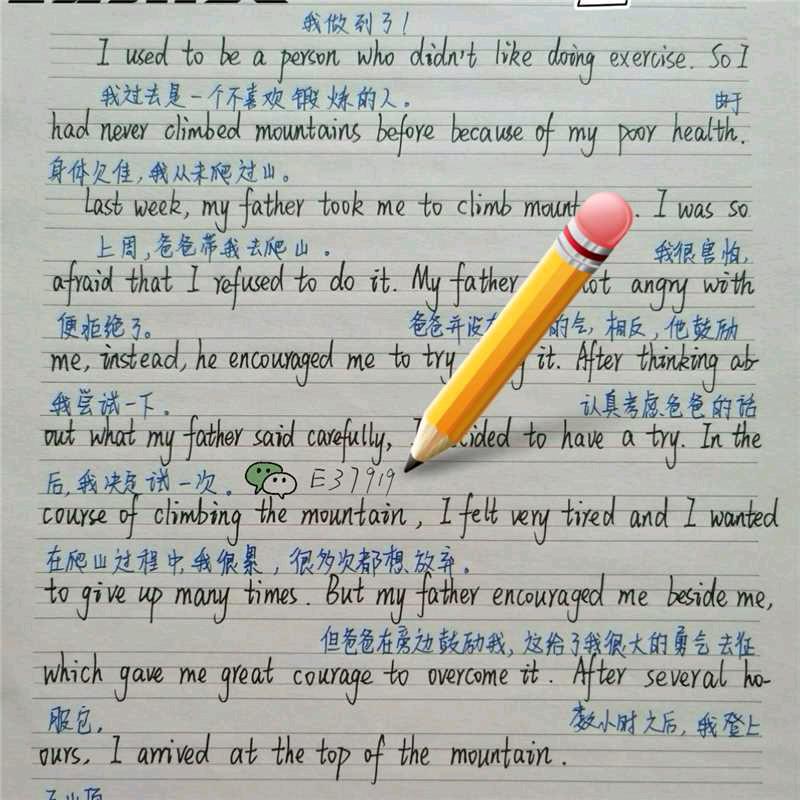 我做到了!
I used to be a person who didn't like doing exercise. So I
我过去是一个不喜欢锻炼的人。 由于
had never climbed mountains before because of my poor health.
身体欠佳,我从未爬过山。
Last week, my father took me to climb mount . I was so
上周,爸爸带我去爬山。 我很害怕,
afraid that I refused to do it. My father not angry with
便拒绝了。 爸爸并没 的气,相反,他鼓励
me, instead, he encouraged me to try it. After thinking ab-
我尝试一下。 认真考虑爸爸的话
out what my father said carefully, I decided to have a try. In the
后,我决定试一次。 E37919
course of climbing the mountain, I felt very tired and I wanted
在爬山过程中,我很累,很多次都想放弃。
to give up many times. But my father encouraged me beside me,
但爸爸在旁边鼓励我,这给了我很大的勇气去征
which gave me great courage to overcome it. After several ho-
服它。 数小时之后,我登上
ours, I arrived at the top of the mountain.